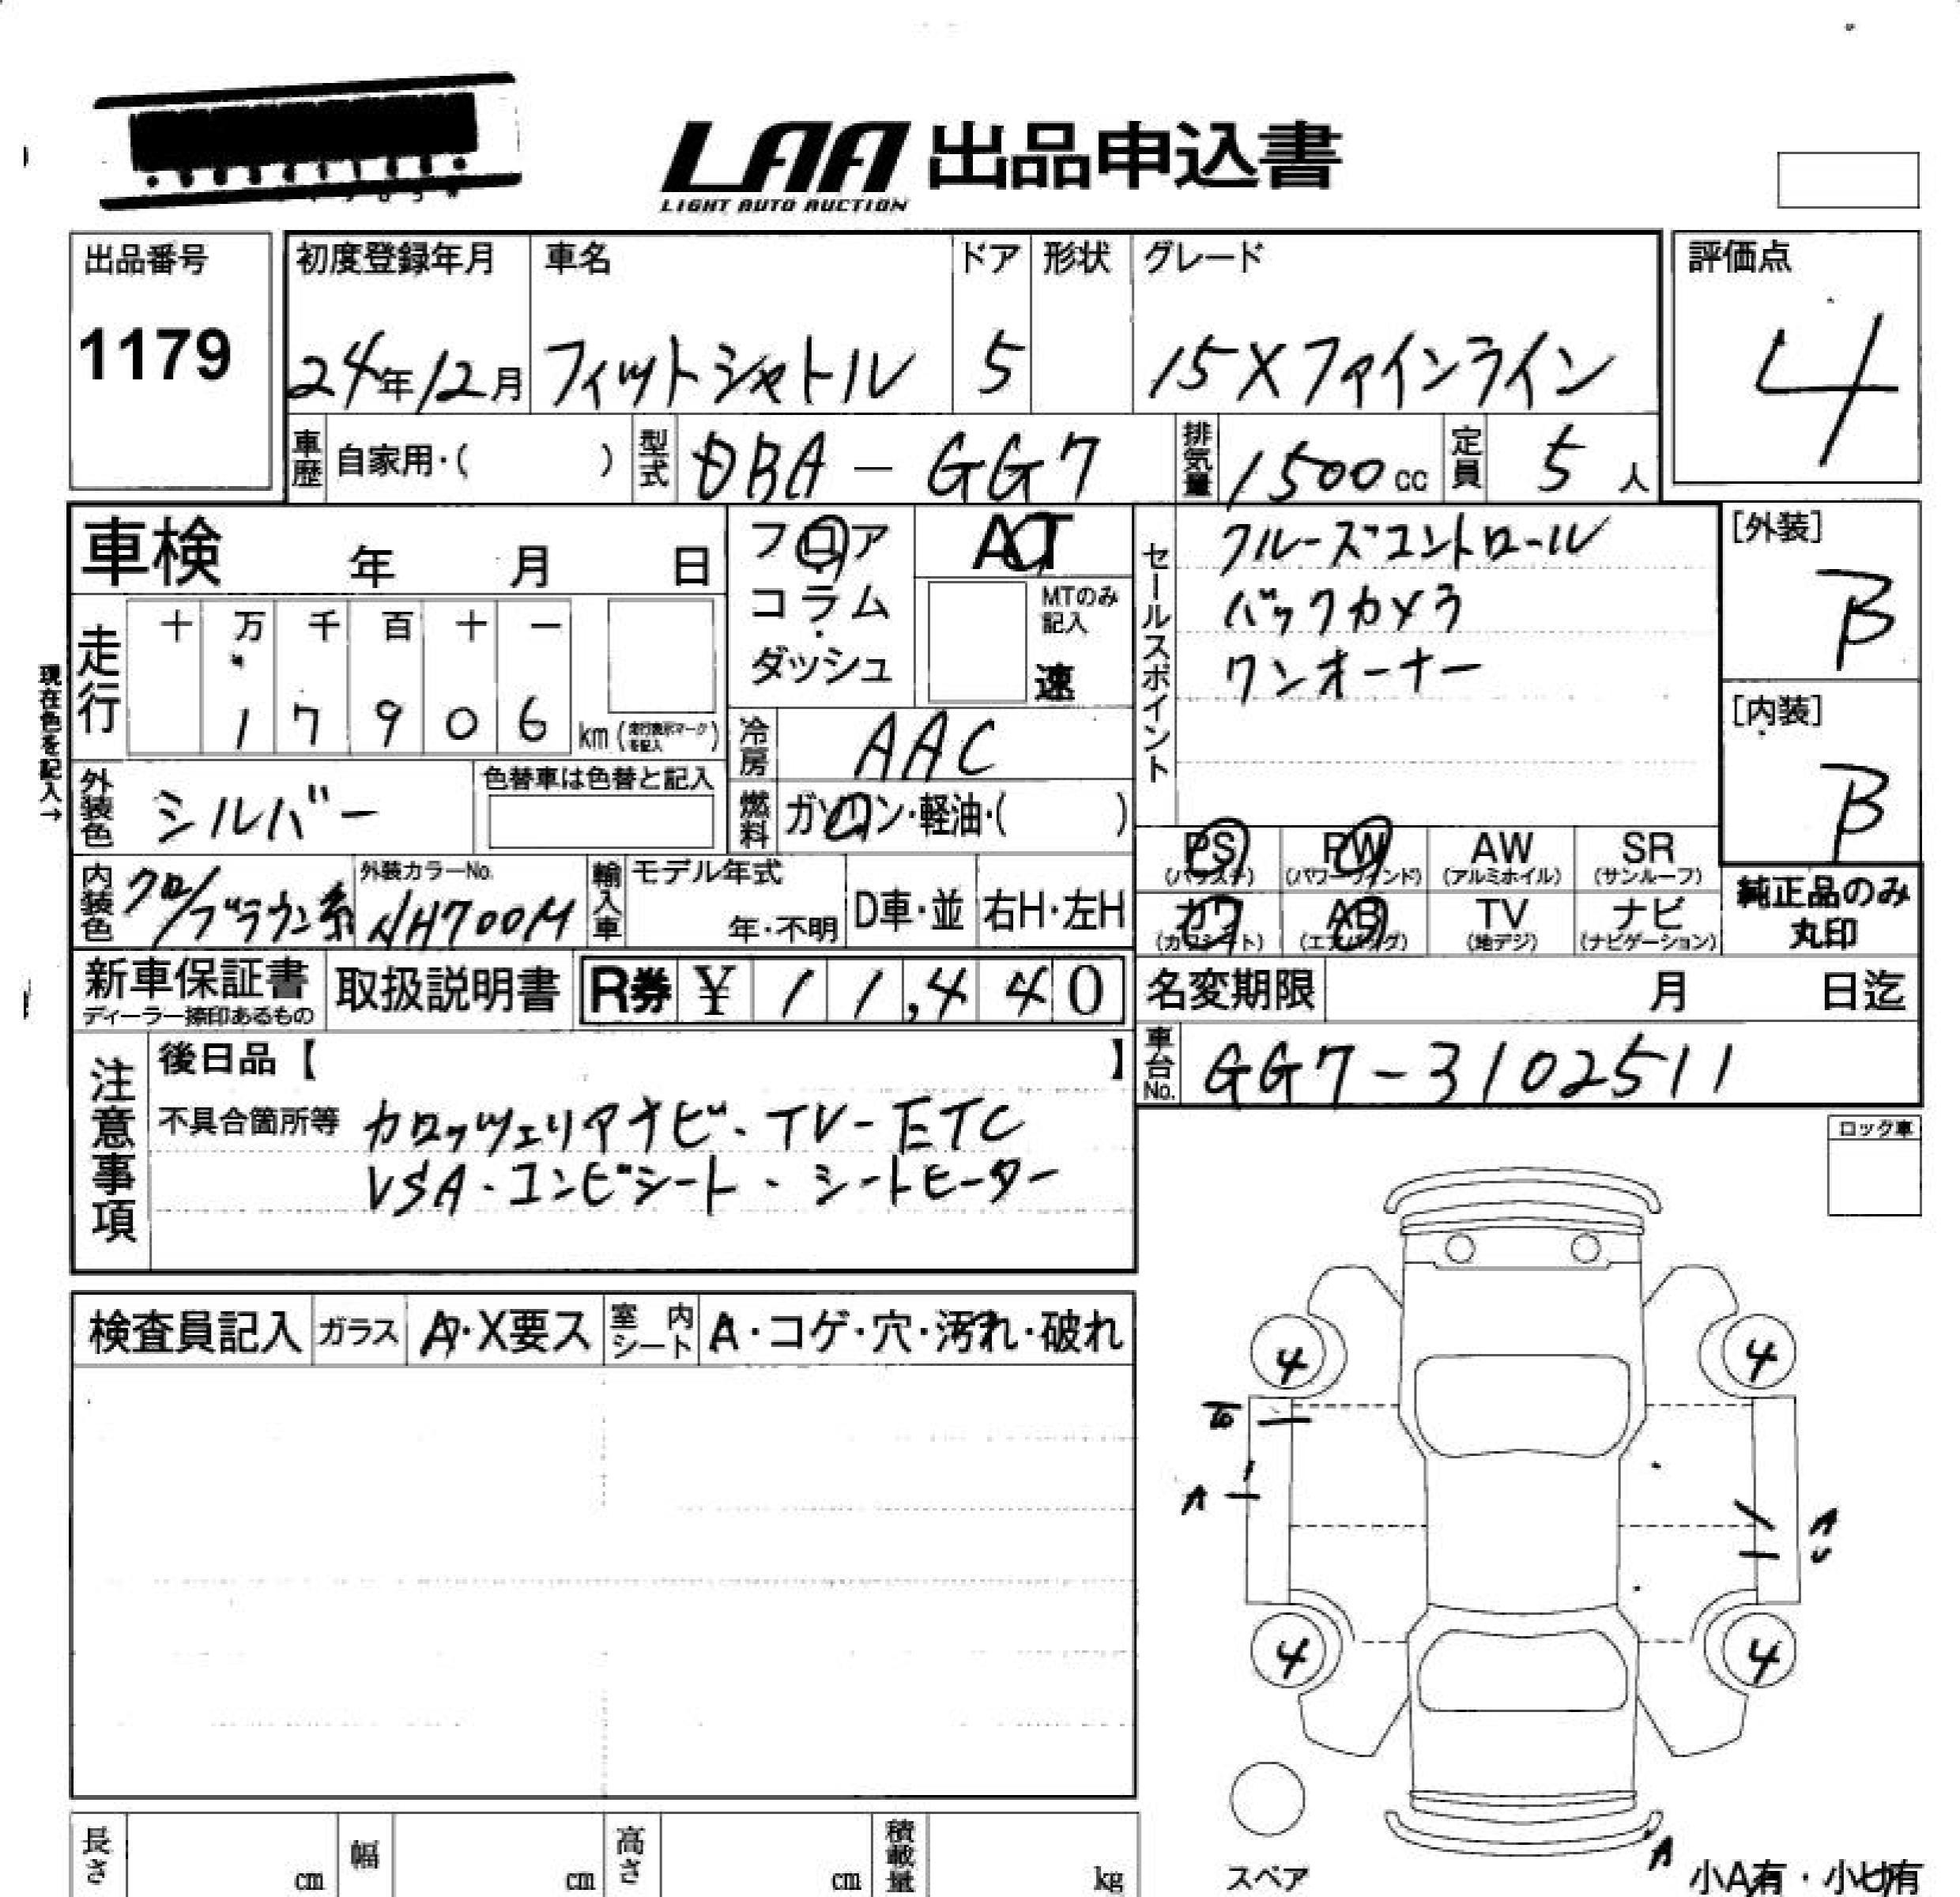 LAA 出品申込書
LIGHT AUTO AUCTION
出品番号
1179
初度登録年月
24年12月
車名
フィットシャトル
ドア
5
形状
グレード
15Xファインライン
評価点
4
車歴 自家用・( )
型式 DBA-GG7
排気量 1500cc
定員 5人
車検 年 月 日
走行
十 万 千 百 十 一
1 7 9 0 6 km
現在色を記入→
フロア
コラム
ダッシュ
AT
MTのみ
記入
速
冷房 AAC
燃料 ガソリン・軽油・( )
セールスポイント
クルーズコントロール
バックカメラ
ワンオーナー
[外装]
B
[内装]
B
外装色 シルバー
色替車は色替と記入
内装色 クロ/ブラウン系
外装カラーNo.
NH700M
輸入車
モデル年式
年・不明
D車・並
右H・左H
PS
(パワステ)
PW
(パワーウインド)
AW
(アルミホイル)
SR
(サンルーフ)
カワ
(カワシート)
AB
(エアバッグ)
TV
(地デジ)
ナビ
(ナビゲーション)
純正品のみ
丸印
新車保証書
ディーラー捺印あるもの
取扱説明書
R券 ¥ 11,440
名変期限 月 日迄
車台No. GG7-3102511
注意事項
後日品【 】
不具合箇所等 カロッツェリアナビ・TV-ETC
VSA・コンビシート・シートヒーター
ロック車
検査員記入
ガラス A・X要ス
室内シート A・コゲ・穴・汚れ・破れ
4
4
A
A
U
4
4
A
スペア
小A有・小U有
長さ cm
幅 cm
高さ cm
積載量 kg